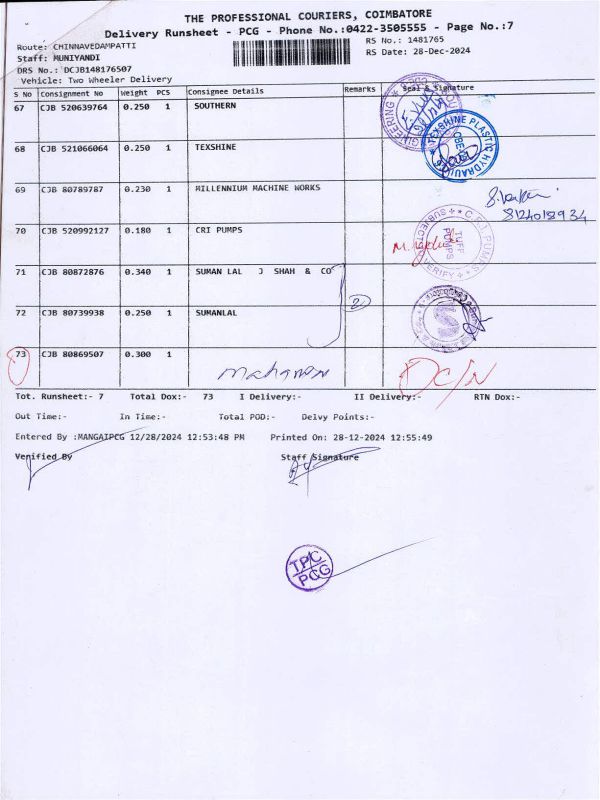 THE PROFESSIONAL COURIERS, COIMBATORE
Delivery Runsheet - PCG - Phone No.:0422-3505555 - Page No.:7
Route: CHINNAVEDAMPATTI
RS No.: 1481765
Staff: MUNIYANDI
RS Date: 28-Dec-2024
DRS No.: DCJB148176507
Vehicle: Two Wheeler Delivery
S No Consignment No Weight PCS Consignee Details Remarks Seal & Signature
67 CJB 520639764 0.250 1 SOUTHERN
68 CJB 521066064 0.250 1 TEXSHINE
TEXSHINE PLASTIC HYDRAULIC
69 CJB 80789787 0.230 1 MILLENNIUM MACHINE WORKS
8124018934
70 CJB 520992127 0.180 1 CRI PUMPS
C.R.I. PUMPS
TUFF
PUMPS
SUBJECT TO VERIFY
71 CJB 80872876 0.340 1 SUMAN LAL J SHAH & CO
2
72 CJB 80739938 0.250 1 SUMANLAL
73 CJB 80869507 0.300 1
DC/N
Tot. Runsheet:- 7 Total Dox:- 73 I Delivery:- II Delivery:- RTN Dox:-
Out Time:- In Time:- Total POD:- Delvy Points:-
Entered By :MANGAIPCG 12/28/2024 12:53:48 PM Printed On: 28-12-2024 12:55:49
Verified By Staff Signature
TPC
PCG